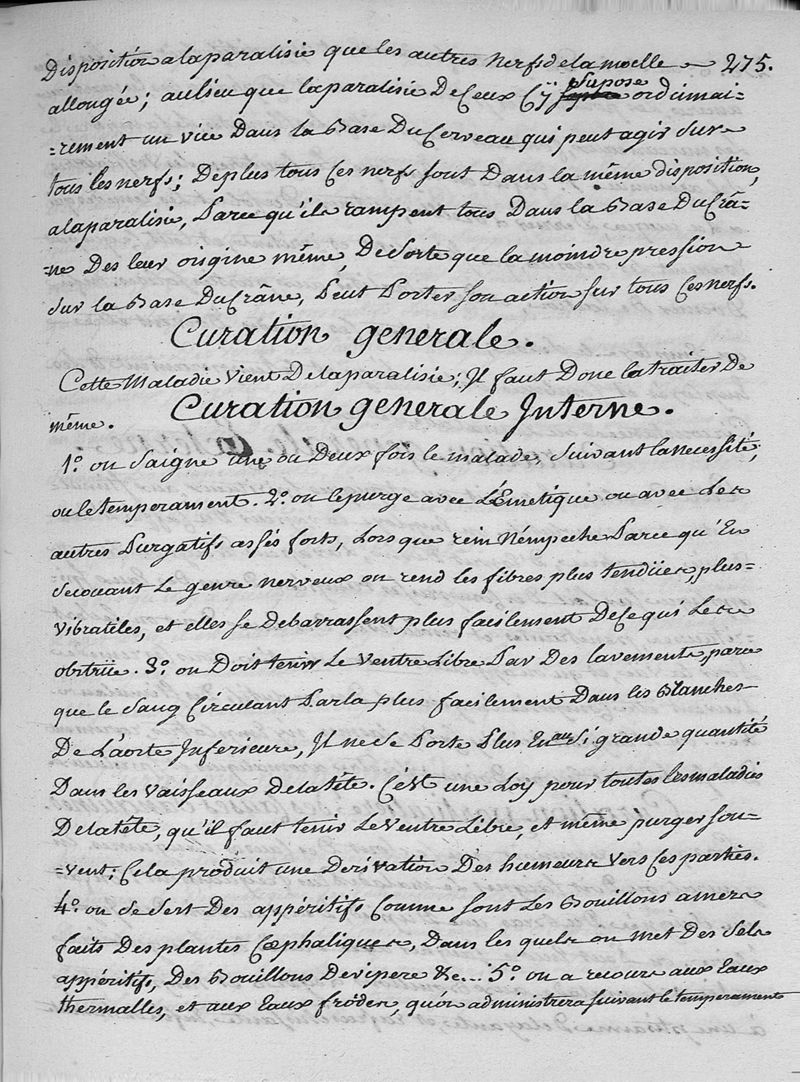 Disposition a la paralisie que les autres nerfs de la moelle 275.
allongée; au lieu que la paralisie De Ceux Cy supose ordinai=
=rement un vice Dans la Base Du Cerveau qui peut agir Sur
tous les nerfs; De plus tous Ces nerfs sont Dans la même disposition,
a la paralisie, Parce qu'ils rampent tous Dans la Base Du Crâ=
=ne Des leur origine même, De Sorte que la moindre pression
Sur la Base Du Crâne, Peut Porter son action sur tous Ces nerfs.
Curation generale.
Cette Maladie Vient De la paralisie; Il faut Donc la traiter De
même. Curation generale Interne.
1º. on Saigne une ou Deux fois le malade, Suivant la necessité,
ou le temperament. 2º. on le purge avec L'Emetique ou avec Les
autres Purgatifs assés forts, Lors que rein N'empeche Parce qu'En
Secouant Le genre nerveux on rend les fibres plus tendües, plus=
Vibratiles, et elles se Debarrassent plus facilement De Ce qui Les
obstrüe. 3º. on Doit tenir Le Ventre Libre Par Des lavements, parce
que le Sang Circulant Par la plus facilement Dans les Blanches
De L'aorte Inferieure, Il ne se Porte Plus En au Si grande quantité
Dans les Vaisseaux De la tête. C'est une Loy pour toutes les maladies
De la tête, qu'il faut tenir Le Ventre Libre, et même purger sou=
=vent; Cela produit une Derivation Des humeurs Vers Ces parties.
4º. on Se Sert Des appéritifs Comme sont Les Bouillons amers
faits Des plantes Cœphaliques, Dans les quels on Met Des Sels
appéritifs, Des Bouillons De vipere &c... 5º. on a recours aux Eaux
thermalles, et aux Eaux froides, qu'on administrera suivant le temperament